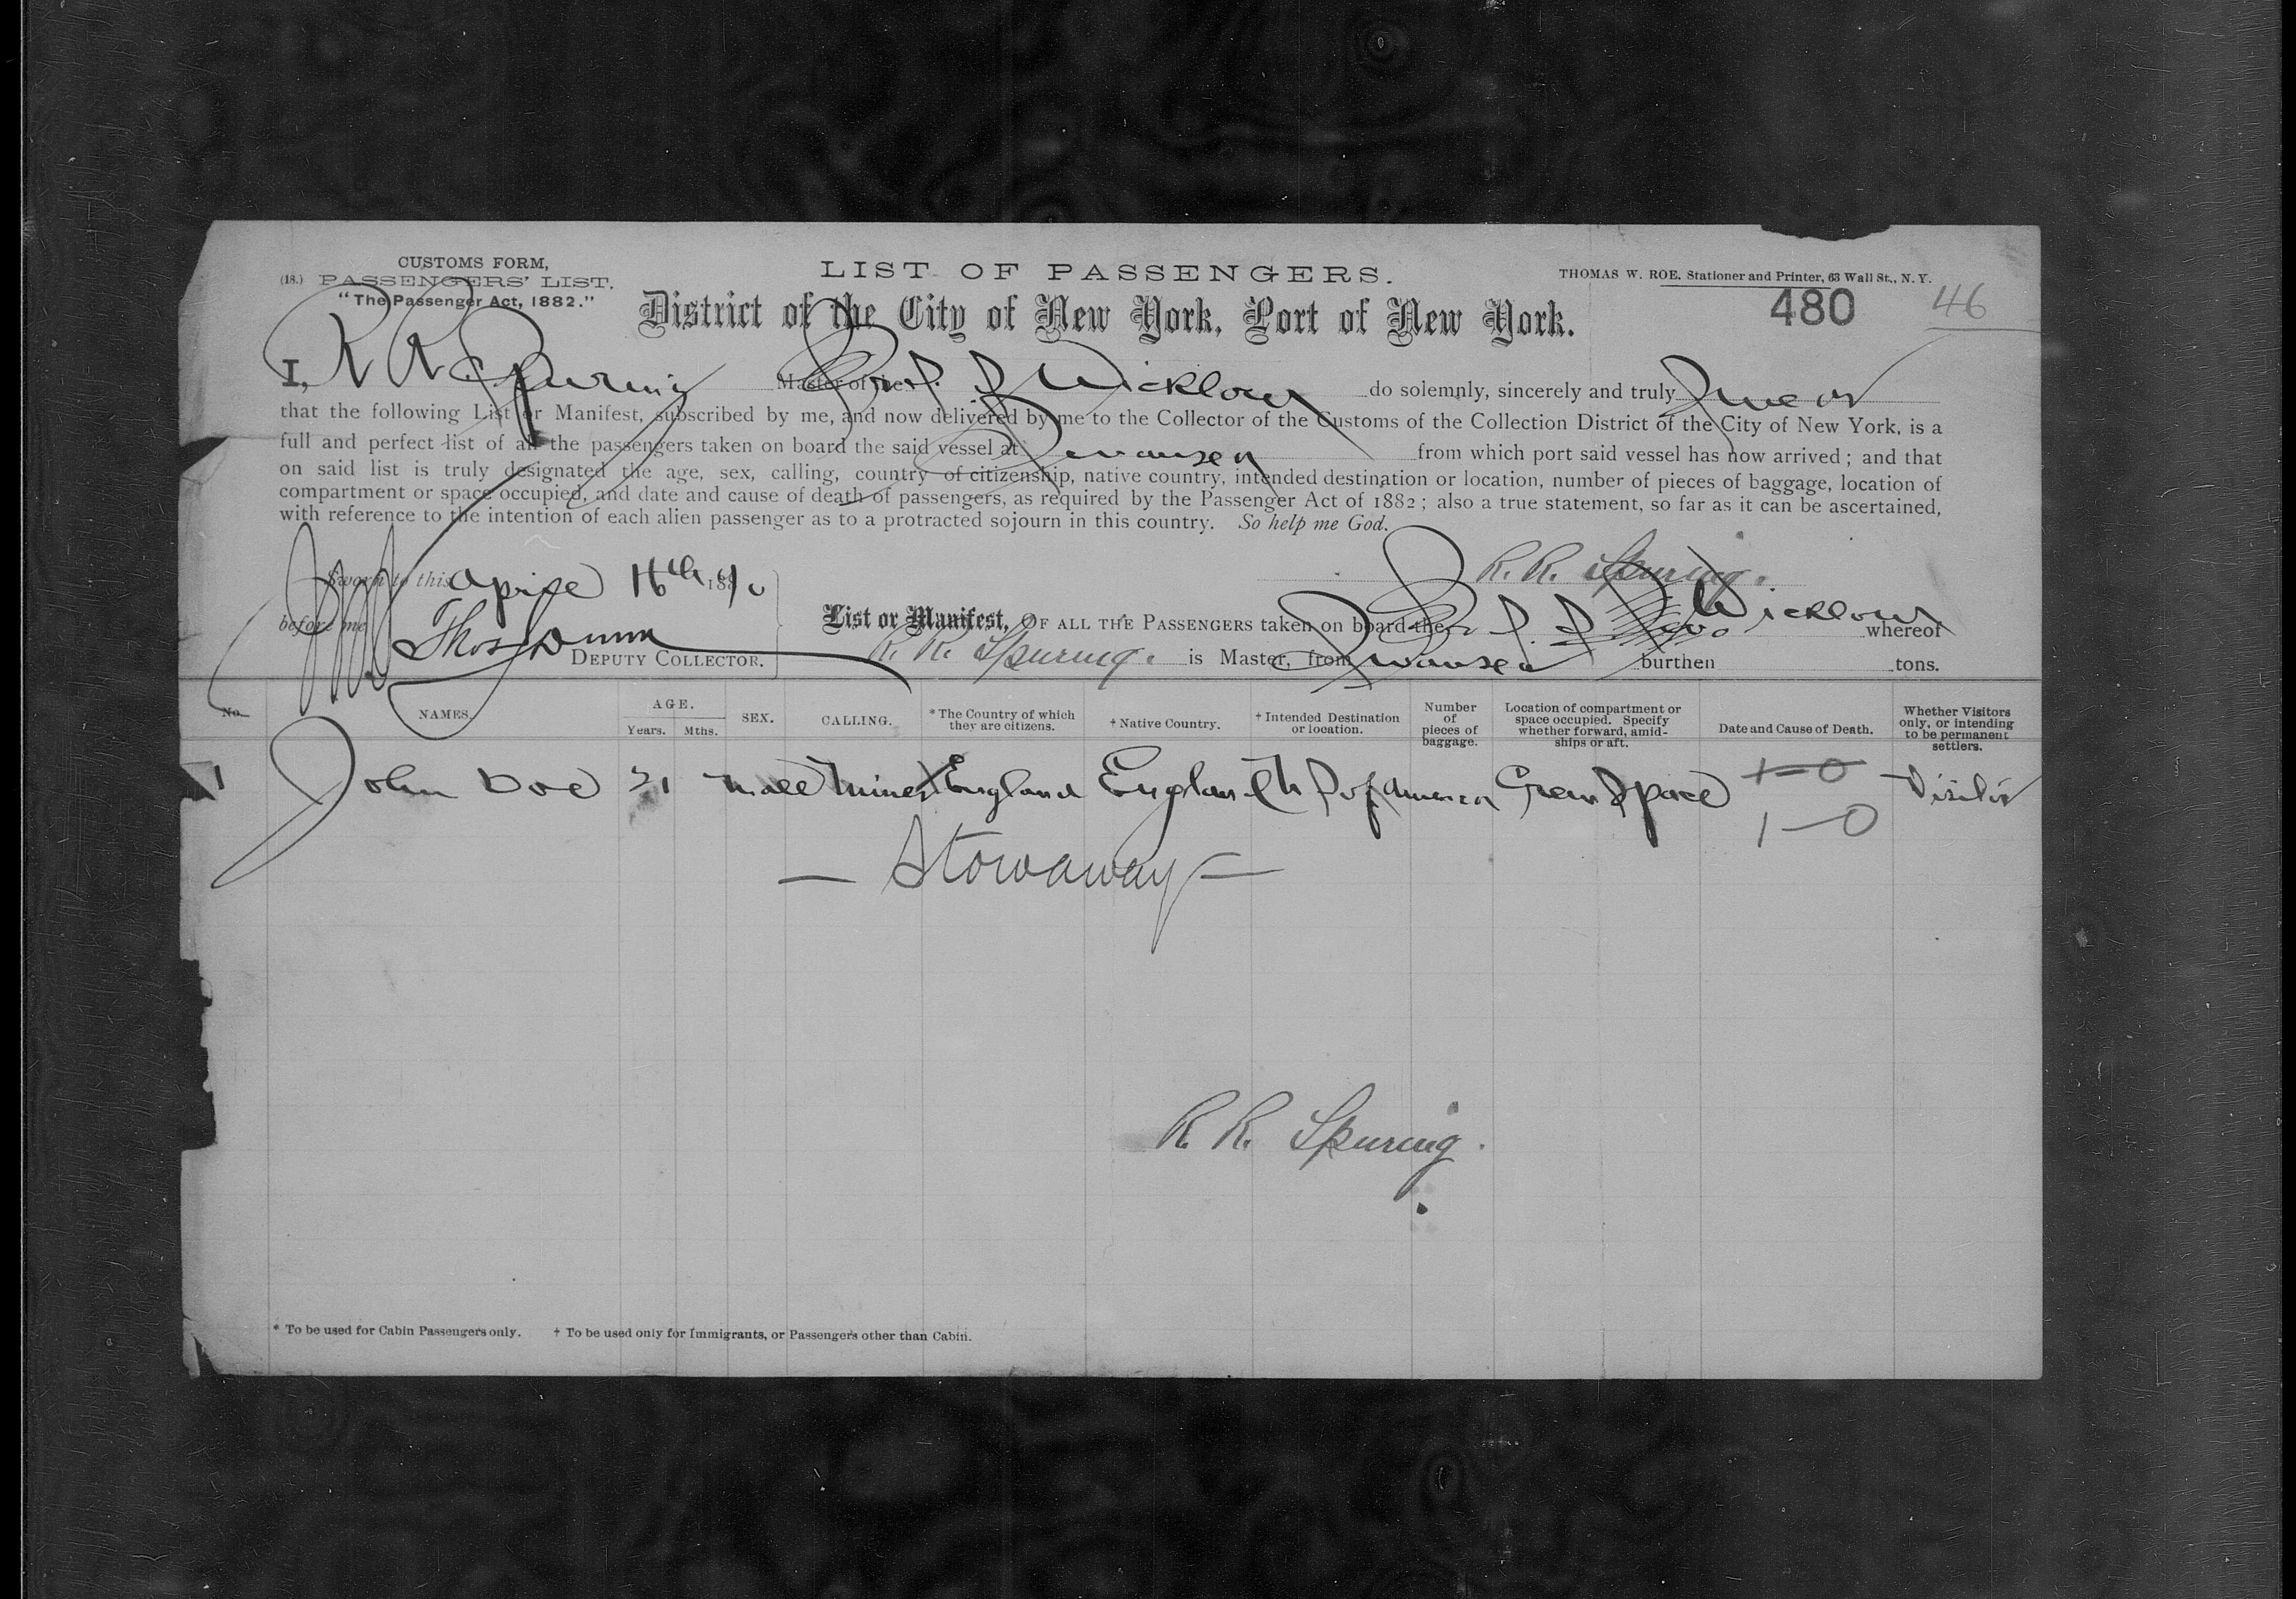 CUSTOMS FORM,
(18.) PASSENGERS' LIST.
"The Passenger Act, 1882."
LIST OF PASSENGERS.
THOMAS W. ROE, Stationer and Printer, 63 Wall St., N. Y.
District of the City of New York, Port of New York.
480
46
I, R R Spuring Master of the Wicklow do solemnly, sincerely and truly Swear
that the following List or Manifest, subscribed by me, and now delivered by me to the Collector of the Customs of the Collection District of the City of New York, is a
full and perfect list of all the passengers taken on board the said vessel at Swansea from which port said vessel has now arrived; and that
on said list is truly designated the age, sex, calling, country of citizenship, native country, intended destination or location, number of pieces of baggage, location of
compartment or space occupied, and date and cause of death of passengers, as required by the Passenger Act of 1882; also a true statement, so far as it can be ascertained,
with reference to the intention of each alien passenger as to a protracted sojourn in this country. So help me God.
R. R. Spuring.
Sworn to this April 16th 1890
before me
Thos Dunn
DEPUTY COLLECTOR.
List or Manifest, OF ALL THE PASSENGERS taken on board the Wicklow whereof
R. R. Spuring. is Master, from Swansea burthen tons.
No. NAMES. AGE. Years. Mths. SEX. CALLING. * The Country of which they are citizens. † Native Country. † Intended Destination or location. Number of pieces of baggage. Location of compartment or space occupied. Specify whether forward, amid-ships or aft. Date and Cause of Death. Whether Visitors only, or intending to be permanent settlers.
1 John Doe 21 male Miner England England U S of America Space 1-0 Visitor
1-0
— Stowaway —
R. R. Spuring.
* To be used for Cabin Passengers only. † To be used only for Immigrants, or Passengers other than Cabin.